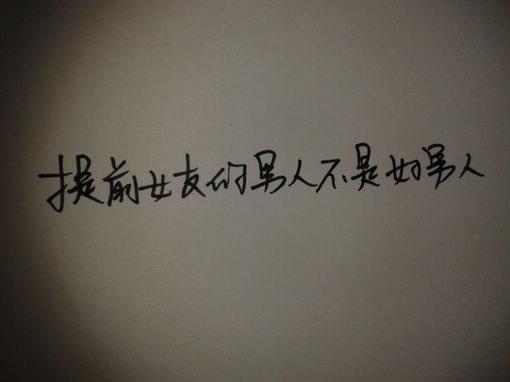 提前女友的男人不是好男人